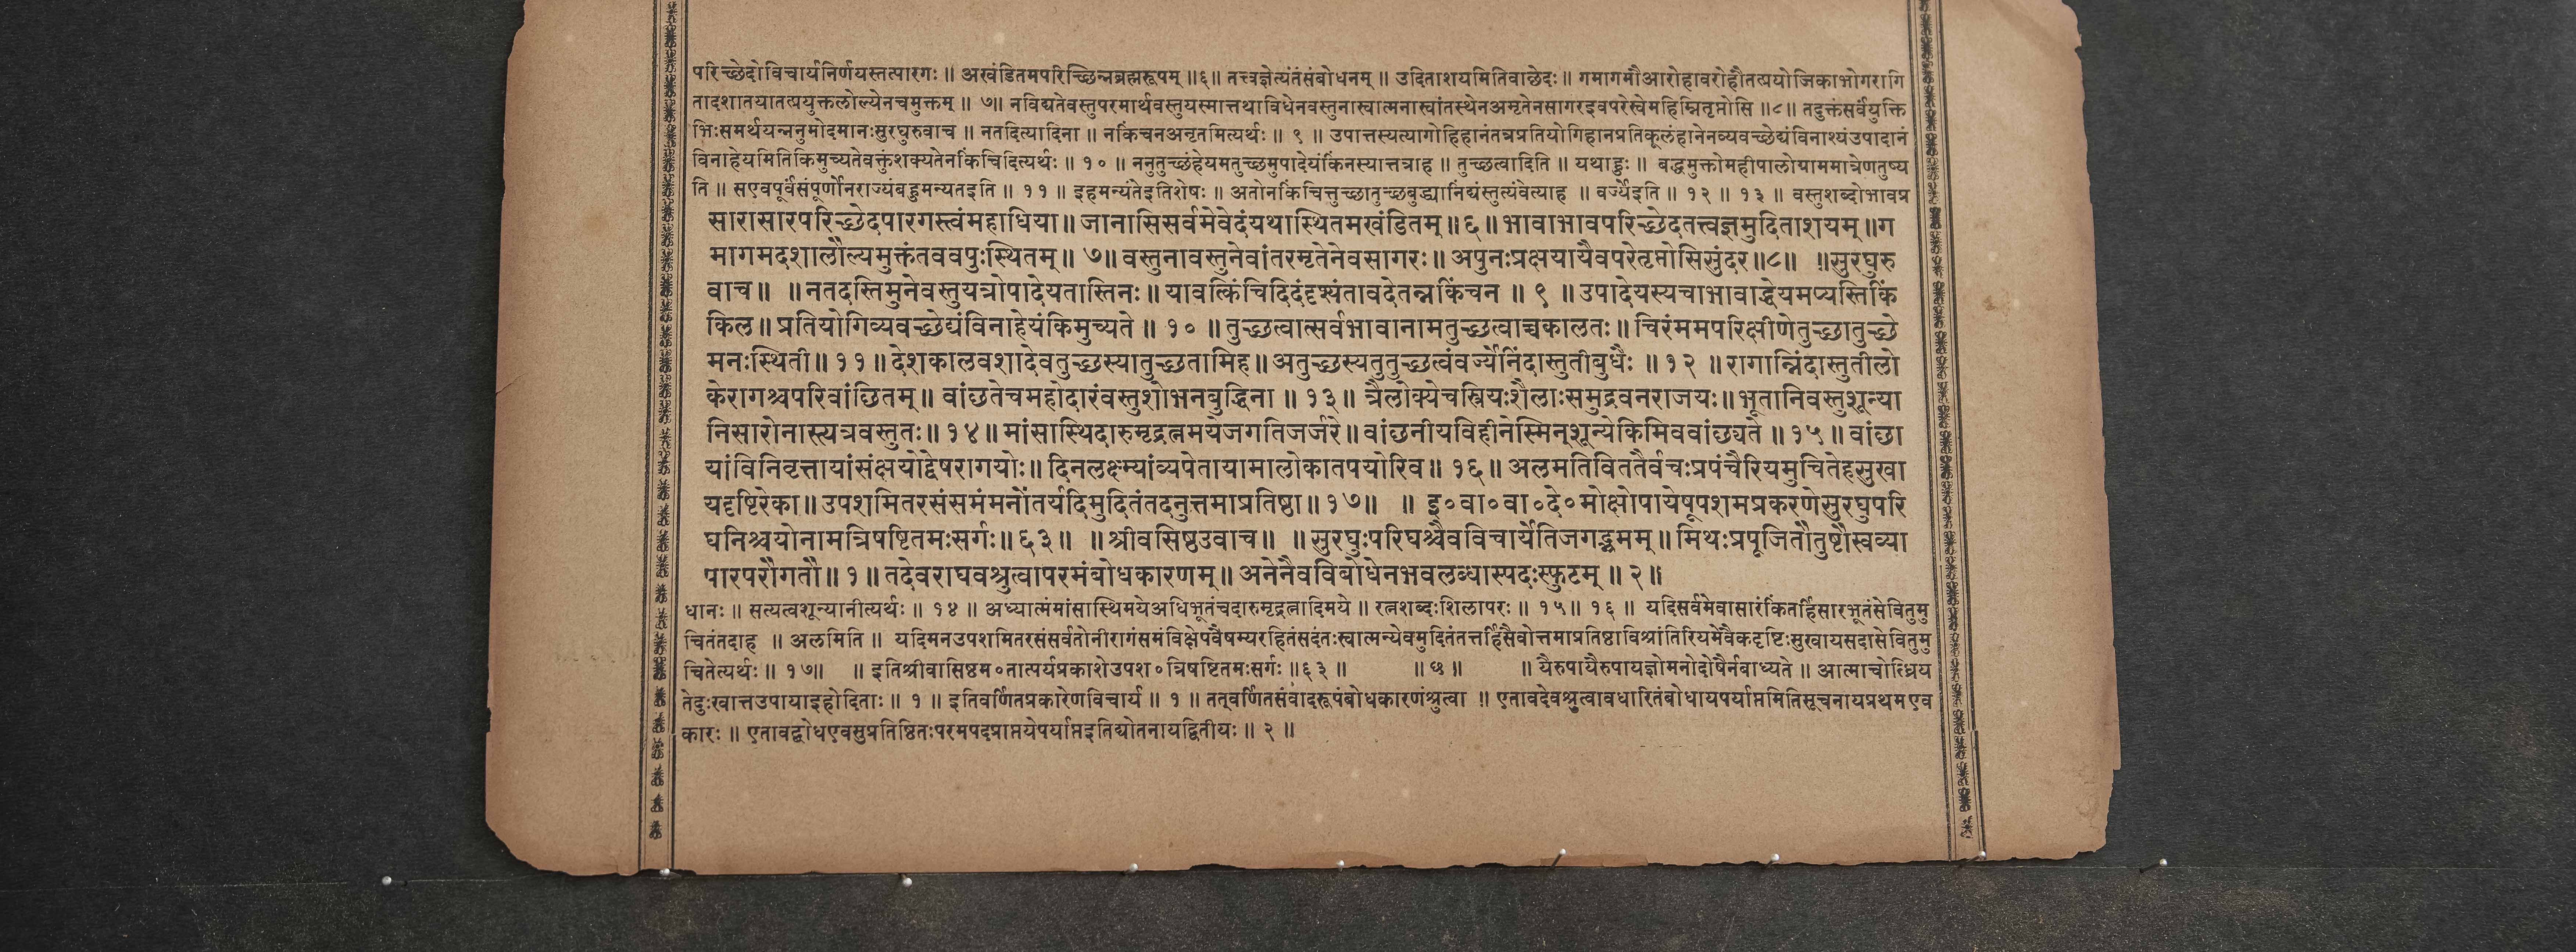 परिच्छेदोविचार्यनिर्णयस्तत्पारगः ॥ अखंडितमपरिच्छिन्नब्रह्मरूपम् ॥६॥ तत्त्वज्ञेत्यंतंसंबोधनम् ॥ उदिताशयमितिवाछेदः ॥ गमागमौआरोहावरोहौतत्प्रयोजिकाभोगरागि
तादशातयातत्प्रयुक्तलौल्येनचमुक्तम् ॥ ७॥ नविद्यतेवस्तुपरमार्थवस्तुयस्मात्तथाविधेनवस्तुनास्वात्मनास्वांतस्थेनअमृतेनसागरइवपरेस्वेमहिम्नितृप्तोसि ॥८॥ तदुक्तंसर्वंयुक्ति
भिःसमर्थयन्ननुमोदमानःसुरघुरुवाच ॥ नतदित्यादिना ॥ नकिंचनअनृतमित्यर्थः ॥ ९ ॥ उपात्तस्यत्यागोहिहानंतन्नप्रतियोगिहानप्रतिकूलंहानेनव्यवच्छेद्यंविनाश्यंउपादानं
विनाहेयमितिकिमुच्यतेवक्तुंशक्यतेनकिंचिदित्यर्थः ॥ १० ॥ ननुतुच्छंहेयमतुच्छमुपादेयंकिंनस्यात्तत्राह ॥ तुच्छत्वादिति ॥ यथाहुः ॥ बद्धमुक्तोमहीपालोग्राममात्रेणतुष्य
ति ॥ सएवपूर्वंसंपूर्णोनराज्यंबहुमन्यतइति ॥ ११ ॥ इहमन्यंतेइतिशेषः ॥ अतोनकिंचित्तुच्छातुच्छबुद्ध्यानिंद्यंस्तुत्यंवेत्याह ॥ वर्ज्येइति ॥ १२ ॥ १३ ॥ वस्तुशब्दोभावप्र
सारासारपरिच्छेदपारगस्त्वंमहाधिया॥ जानासिसर्वमेवेदंयथास्थितमखंडितम्॥ ६॥ भावाभावपरिच्छेदतत्त्वज्ञमुदिताशयम्॥ग
मागमदशालौल्यमुक्तंतववपुःस्थितम्॥ ७॥ वस्तुनावस्तुनेवांतरमृतेनेवसागरः॥ अपुनःप्रक्षयायैवपरेतृप्तोसिसुंदर॥८॥ ॥सुरघुरु
वाच॥ ॥नतदस्तिमुनेवस्तुयत्रोपादेयतास्तिनः॥यावत्किंचिदिदंदृश्यंतावदेतन्नकिंचन ॥ ९ ॥उपादेयस्यचाभावाद्धेयमप्यस्तिकिं
किल॥ प्रतियोगिव्यवच्छेद्यंविनाहेयंकिमुच्यते ॥ १० ॥तुच्छत्वात्सर्वभावानामतुच्छत्वाच्चकालतः॥चिरंममपरिक्षीणेतुच्छातुच्छे
मनःस्थिती॥ ११॥ देशकालवशादेवतुच्छस्यातुच्छतामिह॥अतुच्छस्यतुतुच्छत्वंवर्ज्येनिंदास्तुतीबुधैः ॥१२ ॥रागान्निंदास्तुतीलो
केरागश्चपरिवांछितम्॥ वांछतेचमहोदारंवस्तुशोभनबुद्धिना ॥ १३॥ त्रैलोक्येचस्त्रियःशैलाःसमुद्रवनराजयः॥भूतानिवस्तुशून्या
निसारोनास्त्यत्रवस्तुतः॥१४॥मांसास्थिदारुमृद्रत्नमयेजगतिजर्जरे॥वांछनीयविहीनेस्मिन्शून्येकिमिववांछ्यते ॥१५॥ वांछा
यांविनिवृत्तायांसंक्षयोद्वेषरागयोः॥ दिनलक्ष्म्यांव्यपेतायामालोकातपयोरिव॥ १६॥ अलमतिविततैर्वचःप्रपंचैरियमुचितेहसुखा
यदृष्टिरेका॥उपशमितरसंसमंमनोंतर्यदिमुदितंतदनुत्तमाप्रतिष्ठा॥१७॥ ॥ इ०वा०वा०दे०मोक्षोपायेषूपशमप्रकरणेसुरघुपरि
घनिश्चयोनामत्रिषष्टितमःसर्गः॥६३॥ ॥श्रीवसिष्ठउवाच॥ ॥सुरघुःपरिघश्चैवविचार्येतिजगद्भ्रमम्॥मिथःप्रपूजितौतुष्टौस्वव्या
पारपरौगतौ॥ १॥ तदेवराघवश्रुत्वापरमंबोधकारणम्॥ अनेनैवविबोधेनभवलब्धास्पदःस्फुटम् ॥ २॥
धानः ॥ सत्यत्वशून्यानीत्यर्थः ॥ १४ ॥ अध्यात्मंमांसास्थिमयेअधिभूतंचदारुमृद्रत्नादिमये ॥ रत्नशब्दःशिलापरः ॥ १५॥ १६ ॥ यदिसर्वमेवासारंकिंतर्हिसारभूतंसेवितुमु
चितंतदाह ॥ अलमिति ॥ यदिमनउपशमितरसंसर्वतोनीरागंसमंविक्षेपवैषम्यरहितंसदंतःस्वात्मन्येवमुदितंतत्तर्हिसैवोत्तमाप्रतिष्ठाविश्रांतिरियमेवैकदृष्टिःसुखायसदासेवितुमु
चितेत्यर्थः ॥ १७॥ ॥ इतिश्रीवासिष्ठम०तात्पर्यप्रकाशेउपश०त्रिषष्टितमःसर्गः ॥६३ ॥ ॥ ५ ॥ ॥ यैरुपायैरुपायज्ञोमनोदोषैर्नबाध्यते ॥ आत्माचोद्ध्रिय
तेदुःखात्तउपायाइहोदिताः ॥ १ ॥ इतिवर्णितप्रकारेणविचार्य ॥ १ ॥ तत्वर्णितसंवादरूपंबोधकारणंश्रुत्वा ॥ एतावदेवश्रुत्वावधारितंबोधायपर्याप्तमितिसूचनायप्रथमएव
कारः ॥ एतावद्बोधएवसुप्रतिष्ठितःपरमपदप्राप्तयेपर्याप्तइतिद्योतनायद्वितीयः ॥ २ ॥